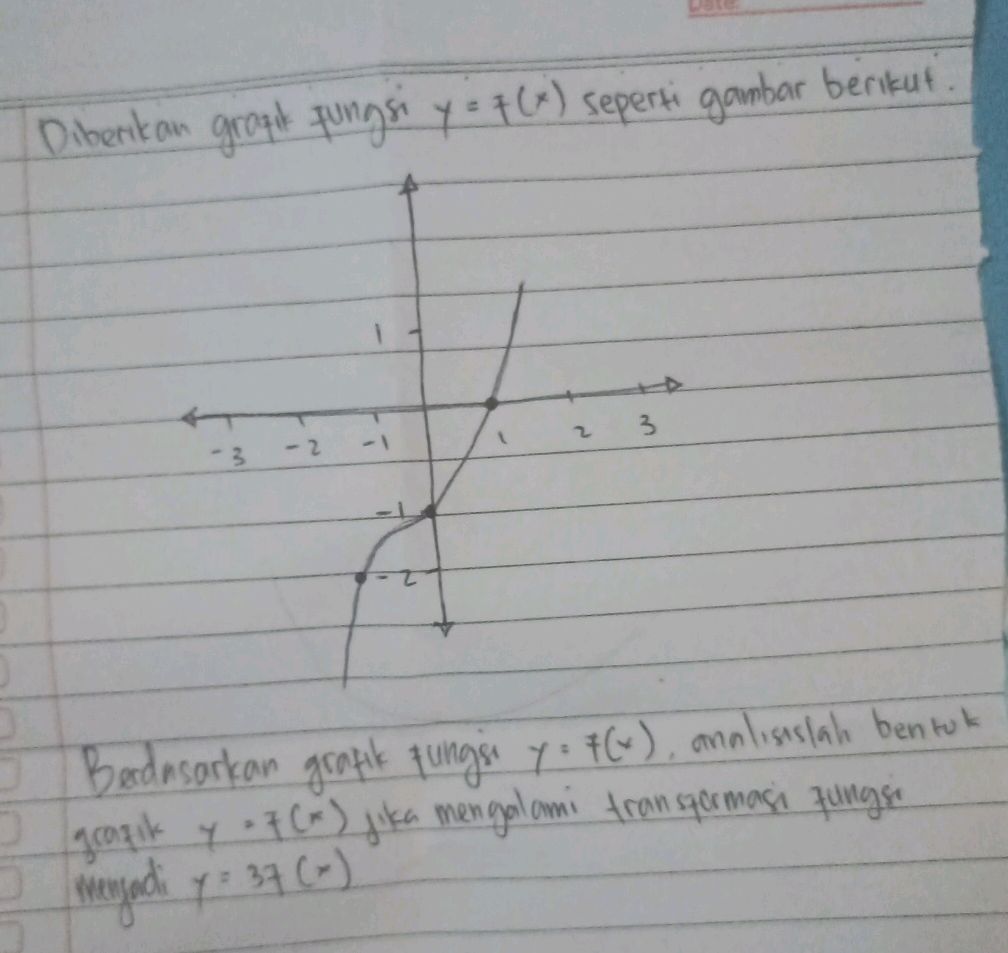 Date:
Diberikan grafik fungsi y = f(x) seperti gambar berikut.
1
-3 -2 -1 1 2 3
-1
-2
Berdasarkan grafik fungsi y = f(x), analisislah bentuk
grafik y = f(x) jika mengalami transformasi fungsi
menjadi y = 3f(x)